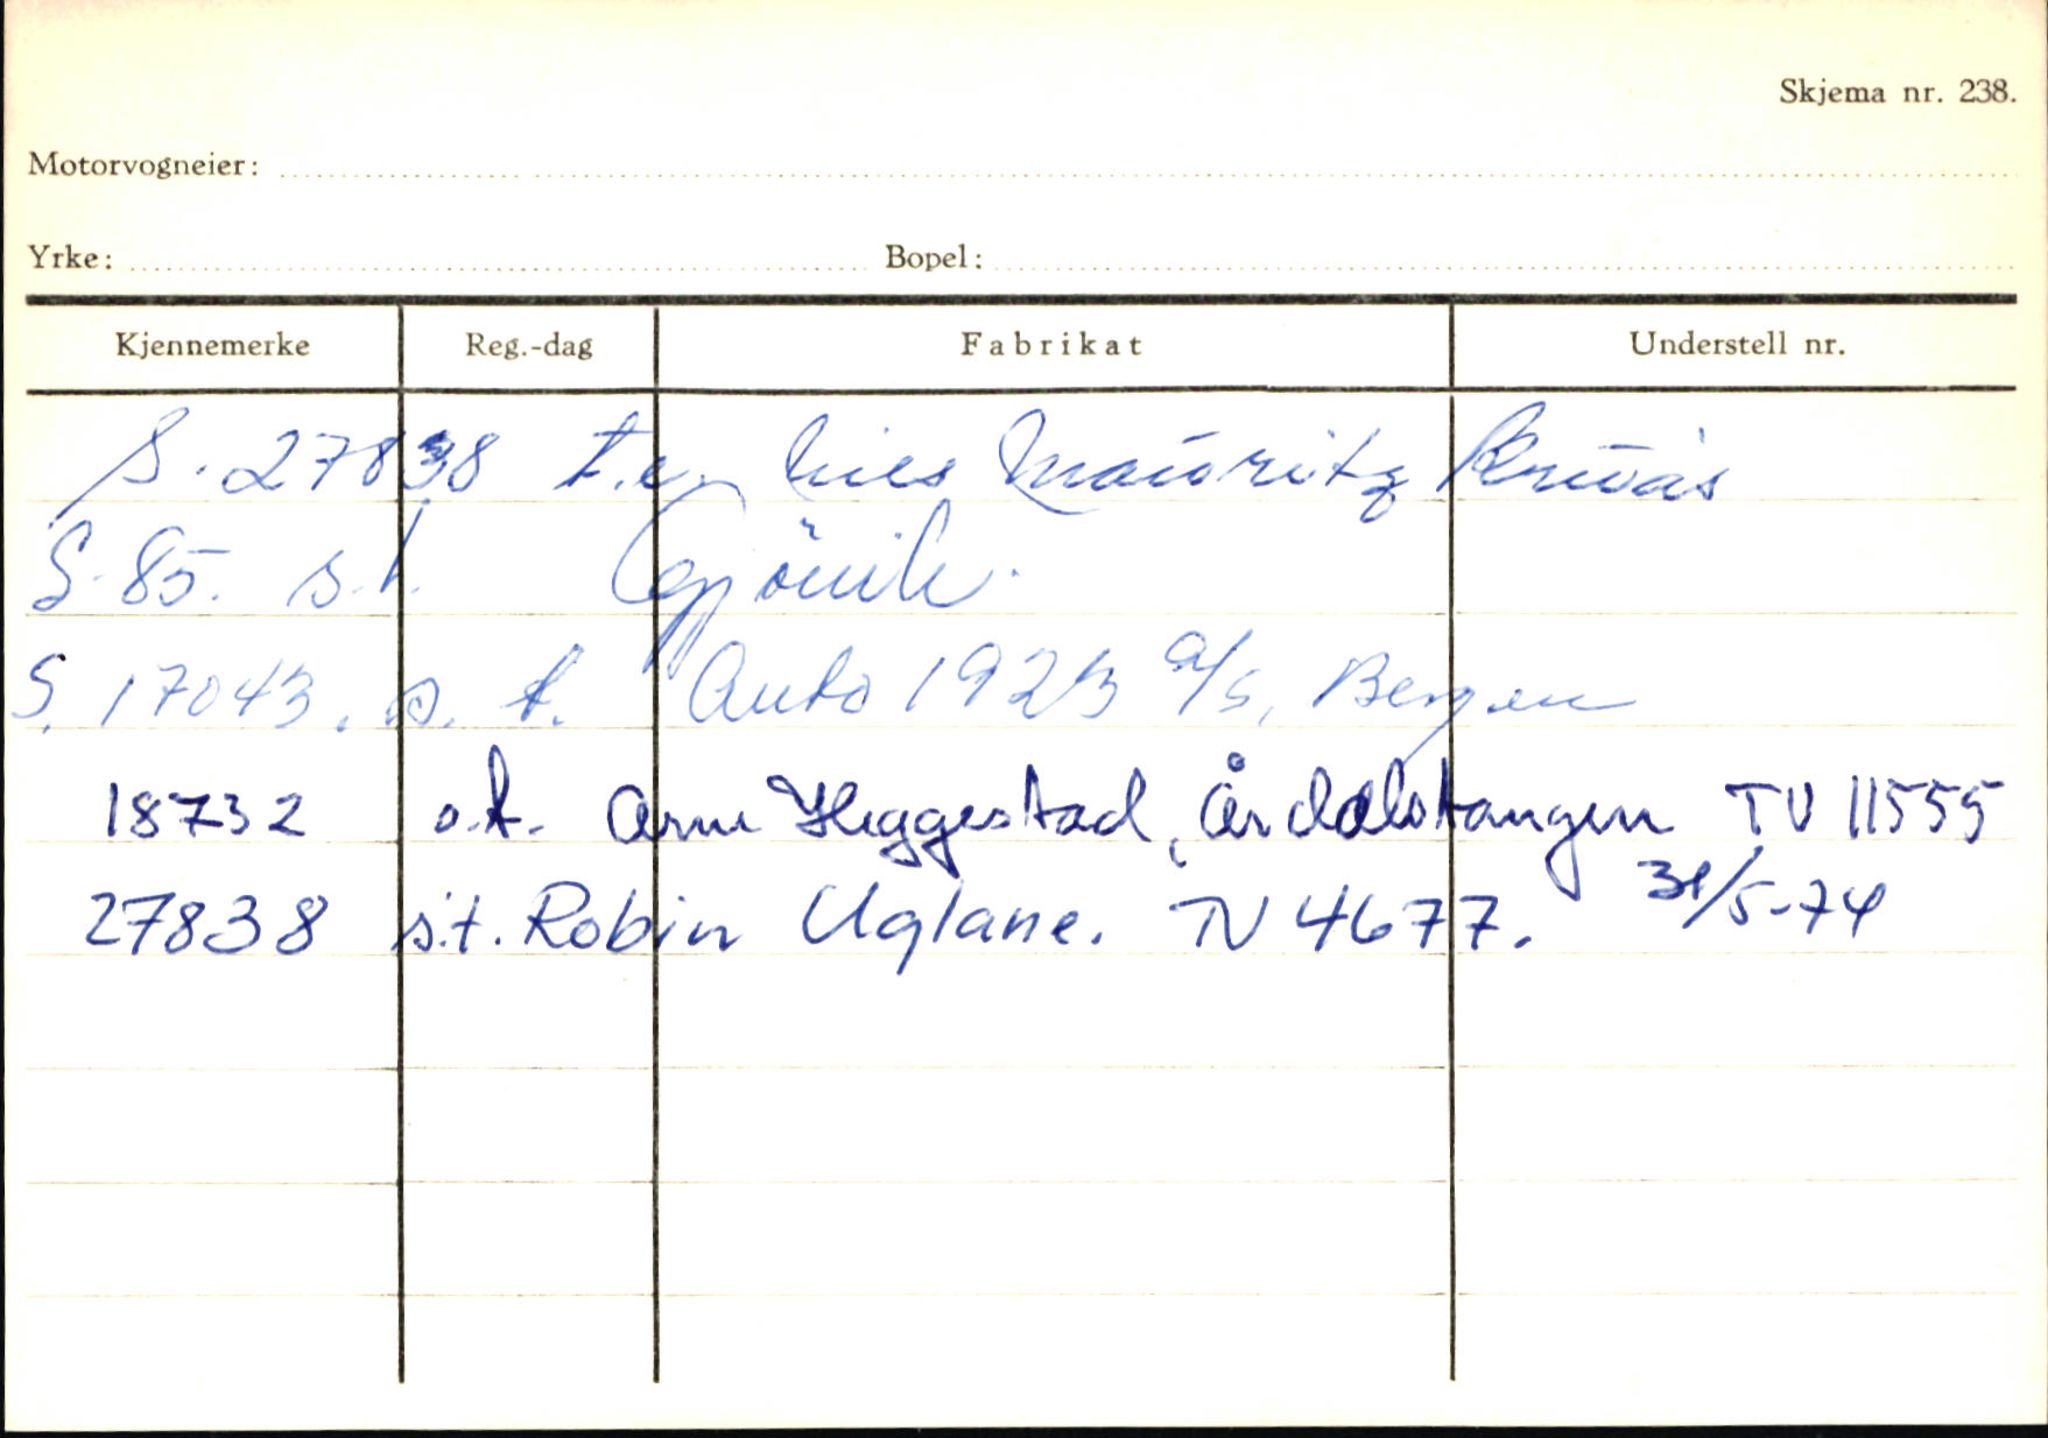 Skjema nr. 238.
Motorvogneier:
Yrke: Bopel:
Kjennemerke Reg.-dag Fabrikat Understell nr.
S. 27838 t.e. Mauritz
S. 85. s.t. Gjövik.
S. 17043. s. t. Auto 1923 a/s, Bergen
18732 o.t. Arne Heggestad, Årdalstangen TU 11555
27838 s.t. Robin Uglane. TU 4677. 31/5-74